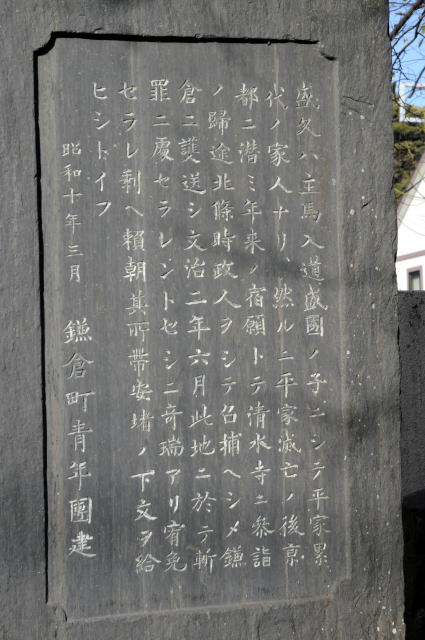 盛久ハ主馬入道盛國ノ子ニシテ平家累
代ノ家人ナリ然ルニ平家滅亡ノ後京
都ニ潜ミ年来ノ宿願トテ清水寺ニ參詣
ノ歸途北條時政人ヲシテ召捕ヘシメ鎌
倉ニ護送シ文治二年六月此地ニ於テ斬
罪ニ處セラレントセシニ奇瑞アリ宥免
セラレ剩ヘ賴朝其所帶安堵ノ下文ヲ給
ヒシトイフ
昭和十年三月 鎌倉町青年團建